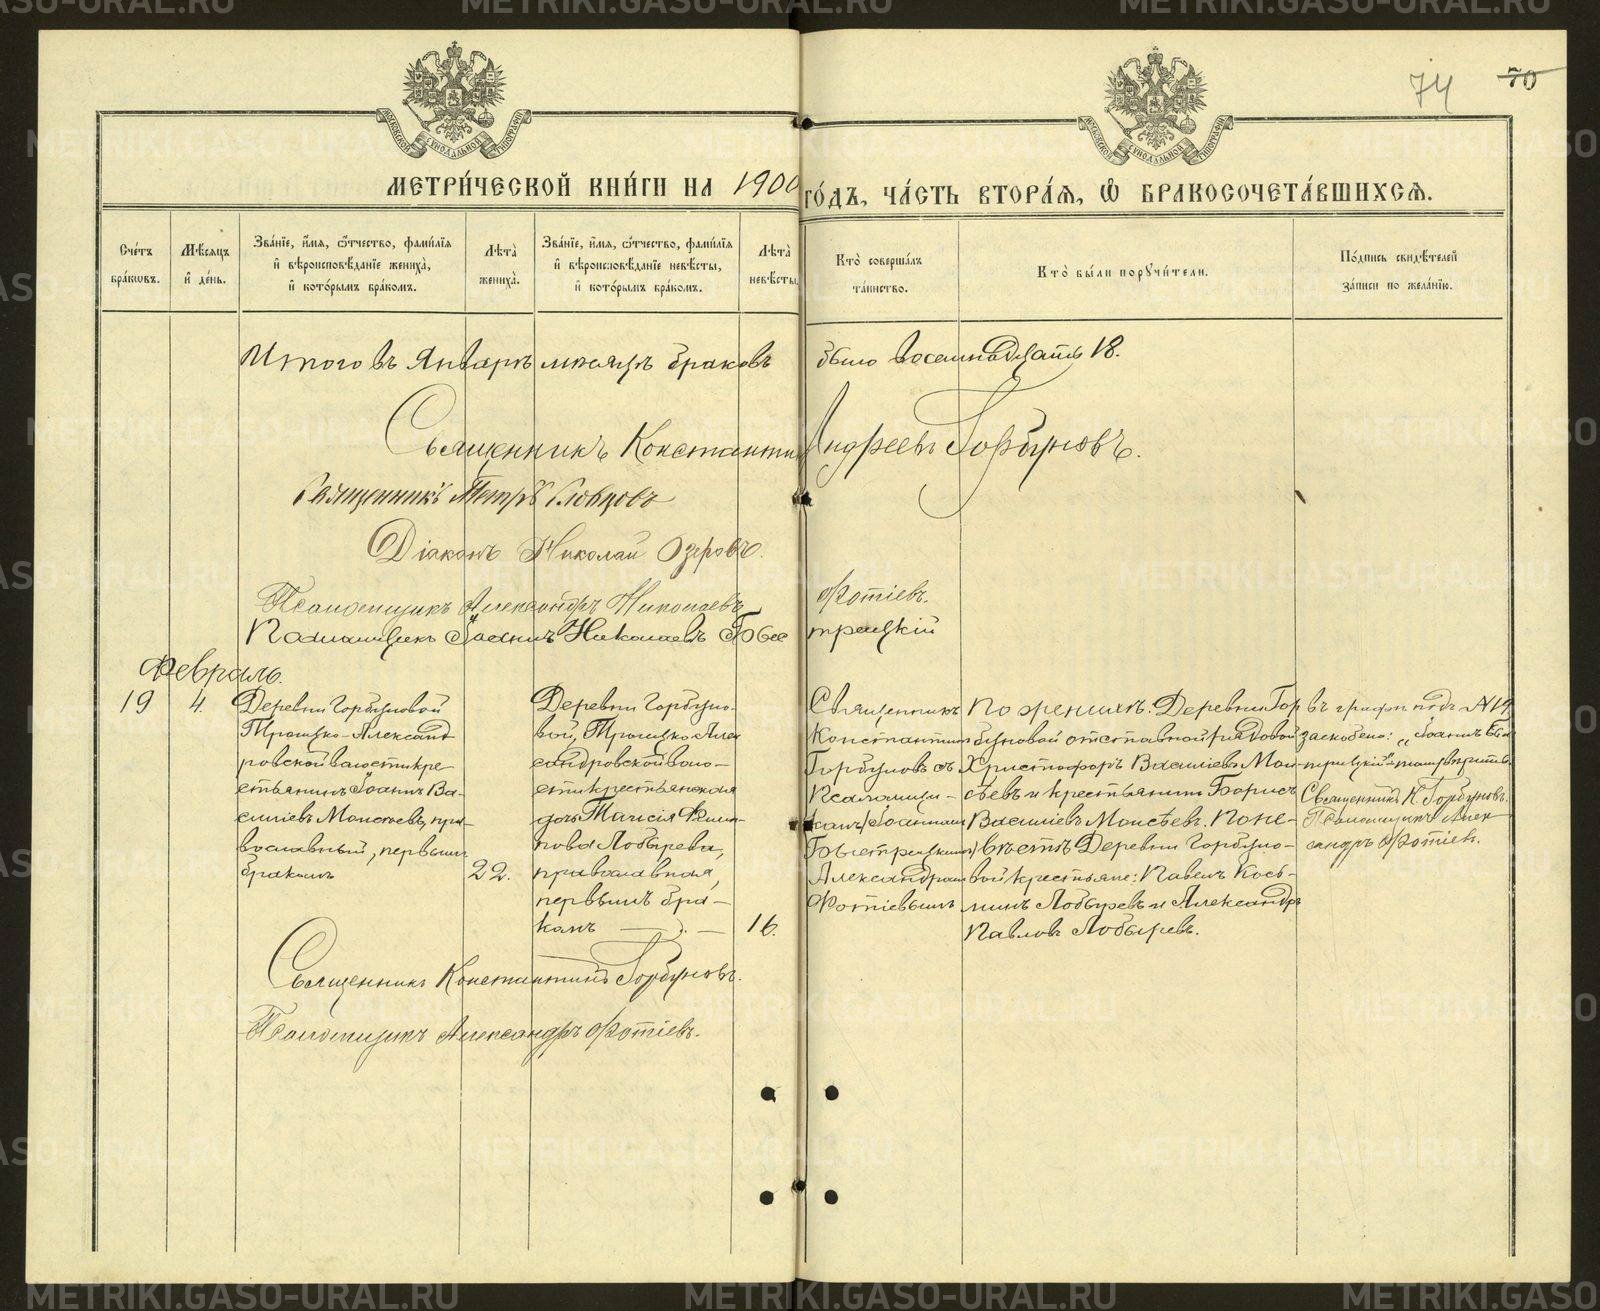 METRIKI.GASO-URAL.RU
74 70
МОСКОВСКОЙ СѴНОДАЛЬНОЙ ТИПОГРАФІИ
МОСКОВСКОЙ СѴНОДАЛЬНОЙ ТИПОГРАФІИ
МЕТРИ́ЧЕСКОЙ КНИ́ГИ НА 1900 ГО́ДЪ, ЧА́СТЬ ВТОРА́Я, Ѡ҆ БРАКОСОЧЕТА́ВШИХСЯ.
Сче́тъ
бра́кѡвъ.
Мѣ́сяцъ
и҆ де́нь.
Зва́нїе, и҆́мя, ѻ҆́тчество, фами́лїя
и҆ вѣроисповѣ́данїе жениха̀,
и҆ кото́рымъ бра́комъ.
Лѣ́та̀
жениха̀.
Зва́нїе, и҆́мя, ѻ҆́тчество, фами́лїя
и҆ вѣроисповѣ́данїе невѣ́сты,
и҆ кото́рымъ бра́комъ.
Лѣ́та̀
невѣ́сты.
Кто̀ соверша́лъ
та́инство.
Кто̀ бы́ли порꙋчи́тели.
По́дпись свидѣ́телей
за́писи по жела́нїю.
Итого въ Январѣ мѣсяцѣ браковъ было восемнадцать 18.
Священникъ Константинъ Андреевъ Горбуновъ.
Священникъ Петръ Словцовъ
Діаконъ Николай Озеровъ.
Псаломщикъ Александръ Николаевъ Фотіевъ.
Псаломщикъ Іоаннъ Николаевъ Бы трицкій
Февраль.
19
4.
Деревни Горбуновой
Троицко-Александ
ровской волости кре
стьянинъ Іоаннъ Ва-
силіевъ Моисѣевъ, пра-
вославный, первымъ
бракомъ
22.
Деревни Горбуно-
вой, Троицко-Алек
сандровской воло-
сти крестьянская
дочь Таисія Филип-
пова Лобырева,
православная,
первымъ бра-
комъ
16.
Священникъ
Константинъ
Горбуновъ съ
Псаломщи-
комъ (Іоанномъ
Быстрицкимъ)
Александромъ
Фотіевымъ
По женихѣ: Деревни Гор
буновой отставной рядовой
Христофоръ Василіевъ Мои-
сѣевъ и крестьянинъ Борисъ
Василіевъ Моисѣевъ. По не-
вѣстѣ: Деревни Горбуно-
вой крестьяне: Павелъ Кось-
минъ Лобыревъ и Александръ
Павловъ Лобыревъ.
въ графѣ подъ №19
заскоблено: „Іоаннъ Бы
трицкій"
Священникъ К. Горбуновъ.
Псаломщикъ Алек
сандръ Фотіевъ.
Священникъ Константинъ Горбуновъ.
Псаломщикъ Александръ Фотіевъ.